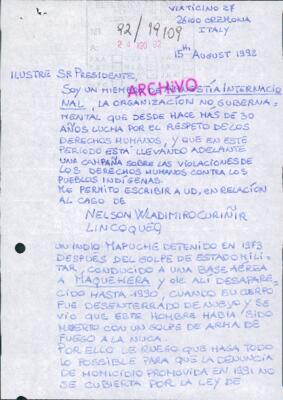 VIATICINO 27
26100 CREMONA
ITALY
92/19109
24 AGO 92
15th AUGUST 1992
ILUSTRE SR PRESIDENTE,
ARCHIVO
SOY UN MIEMBRO DE AMNISTÍA INTERNACIO
NAL, LA ORGANIZACIÓN NO GUBERNA-
MENTAL QUE DESDE HACE MAS DE 30
AÑOS LUCHA POR EL RESPETO DE LOS
DERECHOS HUMANOS, Y QUE EN ESTE
PERIODO ESTÁ LLEVANDO ADELANTE
UNA CAMPAÑA SOBRE LAS VIOLACIONES DE
LOS DERECHOS HUMANOS CONTRA LOS
PUEBLOS INDÍGENAS.
ME PERMITO ESCRIBIR A UD, EN RELACIÓN
AL CASO DE
NELSON WLADIMIRO CURIÑIR
LINCOQUEO
UN INDIO MAPUCHE DETENIDO EN 1973
DESPUÉS DEL GOLPE DE ESTADO MILI-
TAR, CONDUCIDO A UNA BASE AÉREA
A MAQUEHERA Y DE ALÍ DESAPARE-
CIDO HASTA 1990, CUANDO SU CUERPO
FUE DESENTERRADO DE NUEVO Y SE
VIO QUE ESTE HOMBRE HABÍA SIDO
MUERTO CON UN GOLPE DE ARMA DE
FUEGO A LA NUCA.
POR ELLO LE RUEGO QUE HAGA TODO
LO POSSIBLE PARA QUE LA DENUNCIA
DE HOMICIDIO PROMOVIDA EN 1991 NO
SE CUBIERTA POR LA LEY DE